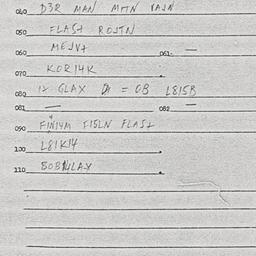 040 D3R MAN MHN VAJN
050 FLASZ ROJTN
060 MEJVZ 061- —
070 KORI4K
080 1Z GLAX = OB L8I5B
081 — 082 —
090 FINI4M FLASZ
100 L8IKI4
110 BOB LAX